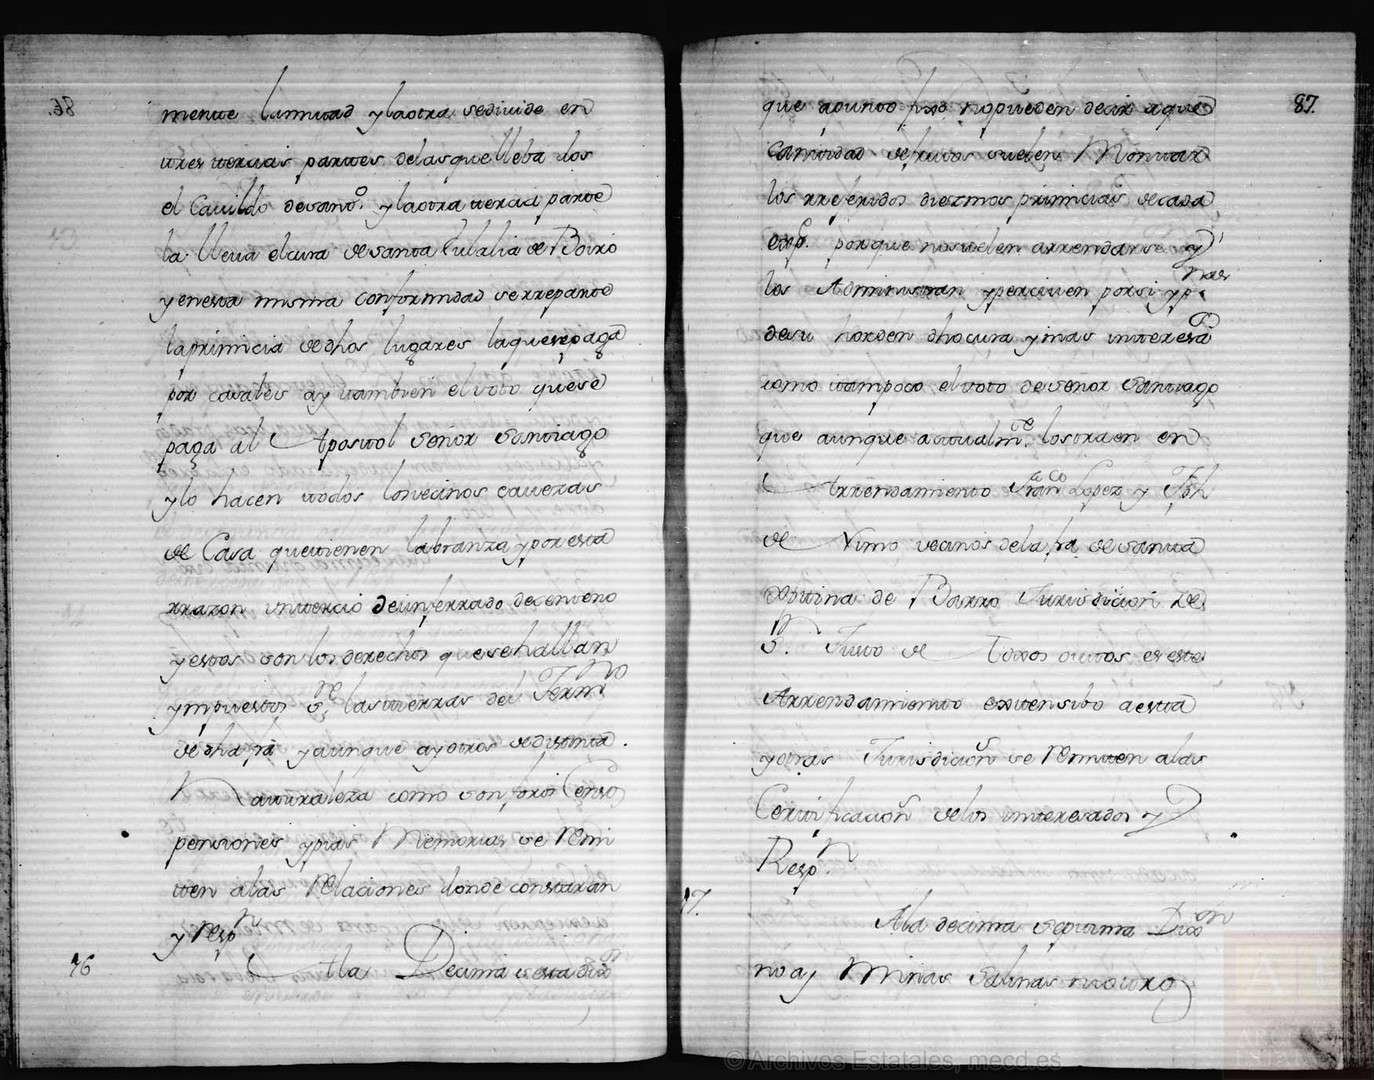 mente lamitad ylaotra sedivide en
tres tercias partes delas que lleba los
el Cavildo desant.º ylaotra tercia parte
la lleva elcura desanta Eulalia de Boiro
y enesta misma conformidad serreparte
laprimicia dedhos lugares laquesepaga
por casales ay tambien el voto quese
paga al Apostol señor Santiago
ylo hacen todos losvecinos caveras
de Casa quetienen labranza yporesta
rrazon untercio deunferrado decenteno
yestos son los derechos quesehallan
ympuestos s.re lastierras del Termno
de dha fra yaunque ayotros dedistinta
Naturaleza como son foros Censo
pensiones ypias Memorias se Remi
tten alas Relaciones donde constaran
y resp.n
16 Ala Decima sesta dix.on
86.
87.
que apunto fixo nopueden decir aque
Cantidad defrutos suelen Montar
los rreferidos diezmos primicias decada
esp.e porque nosuelen arrendarse y
los Administran yperciven porsi yp.nas
desu horden dhocura ymas interesa.d
como tampoco elvoto deseñor Santiago
que aunque actualm.te lostraen en
Arrendamiento Fran.co Lopez y Jph
de Nimo vecinos dela fra desanta
Cristina de Barro Jurisdicion de
Justo de Toxos outos eseste
Arrendamiento extensibo aesta
yotras Jurisdicion se Remiten alas
Certificacion delos interesados y
Resp.n
17. Ala decima septima Dix.on
no ay Minas Salinas niotro
© Archivos Estatales, mecd.es